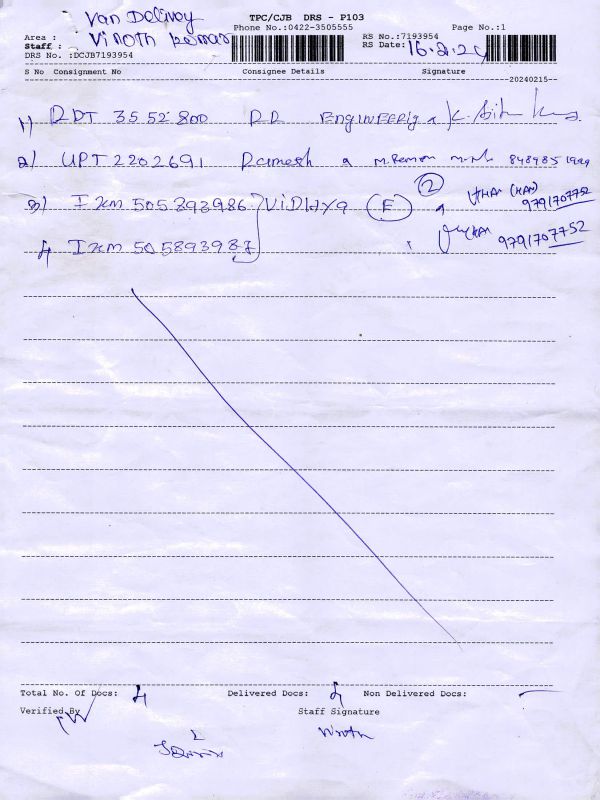 Van Delivey TPC/CJB DRS - P103
Phone No.:0422-3505555 Page No.:1
Area : Vinoth kumar RS No.:7193954
Staff : RS Date: 16.2.24
DRS No. :DCJB7193954
S No Consignment No Consignee Details Signature
20240215
1) RDT 3552800 RR Engineering
2) UPT 2202691 Ramesh
3) IXM 505893986 ViDHya (F) (2) 9791707752
4 IXM 505893987 9791707752
Total No. Of Docs: 4 Delivered Docs: 4 Non Delivered Docs: —
Verified By Staff Signature
Vinoth